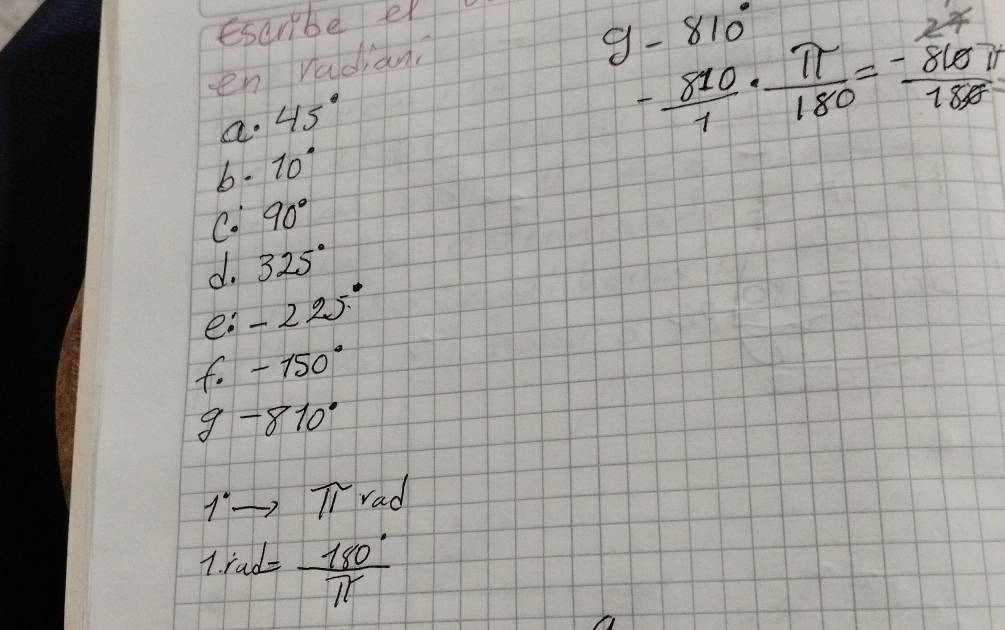 Escribe el
en radian
a. 45°
b. 10°
c. 90°
d. 325°
e. -225°
f. -150°
g -810°
1° → π rad
1 rad = 180° / π
g - 810°
- 810/1 · π/180 = -810π/180 =
27